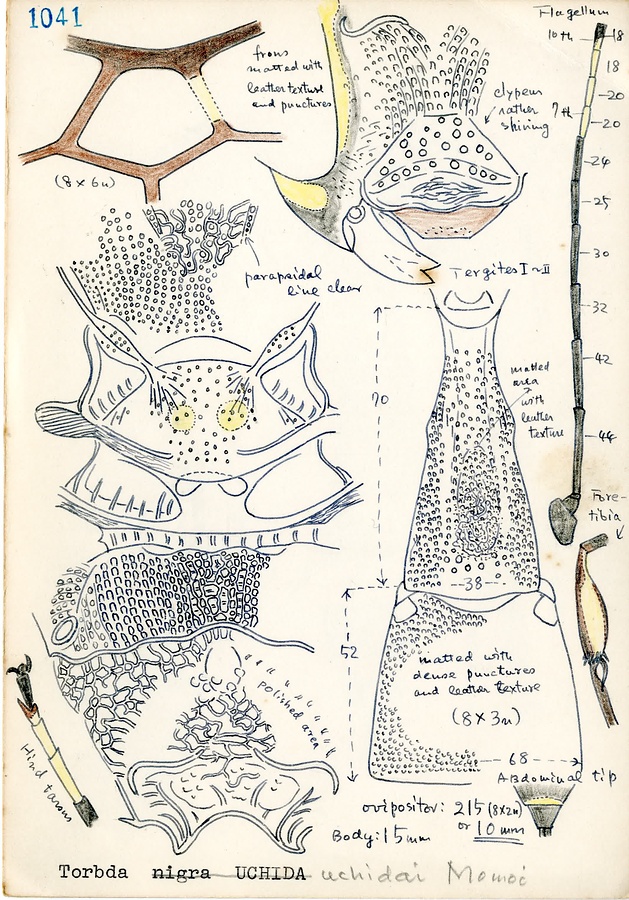 1041
Flagellum
10th
18
18
20
7th
20
24
25
30
32
42
44
frons
matted with
leather texture
and punctures
clypeus
rather
shining
(8×6u)
parapsidal
line clear
Tergites I~II
70
matted
area
with
leather
texture
Fore-
tibia
38
52
matted with
dense punctures
and leather texture
(8×3u)
68
polished area
Hind tarsus
Abdominal tip
ovipositor: 215 (8×2u)
or 10 mm
Body: 15 mm
Torbda nigra UCHIDA uchidai Momoi